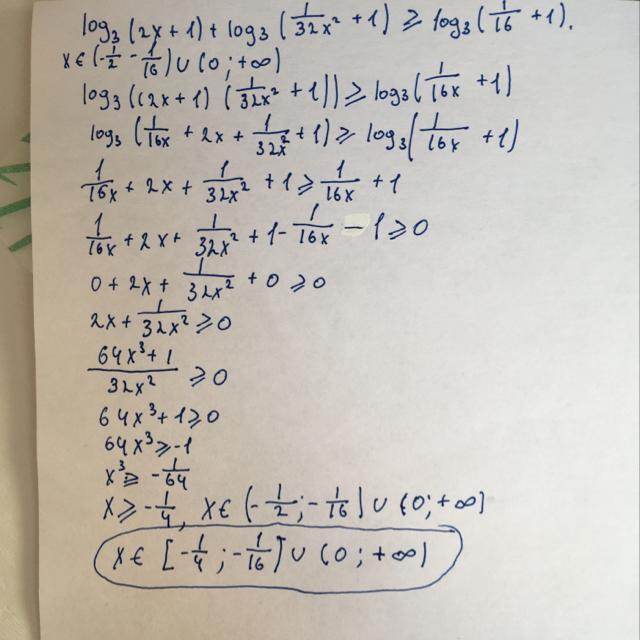 log₃(2x+1) + log₃(1/32x² + 1) ≥ log₃(1/16 + 1).
x ∈ (-1/2 - 1/16) ∪ (0; +∞)
log₃((2x+1)(1/32x² + 1)) ≥ log₃(1/16x + 1)
log₃(1/16x + 2x + 1/32x² + 1) ≥ log₃(1/16x + 1)
1/16x + 2x + 1/32x² + 1 ≥ 1/16x + 1
1/16x + 2x + 1/32x² + 1 - 1/16x - 1 ≥ 0
0 + 2x + 1/32x² + 0 ≥ 0
2x + 1/32x² ≥ 0
64x³+1/32x² ≥ 0
64x³+1 ≥ 0
64x³ ≥ -1
x³ ≥ -1/64
x ≥ -1/4, x ∈ (-1/2; -1/16) ∪ (0; +∞)
x ∈ [-1/4; -1/16) ∪ (0; +∞)